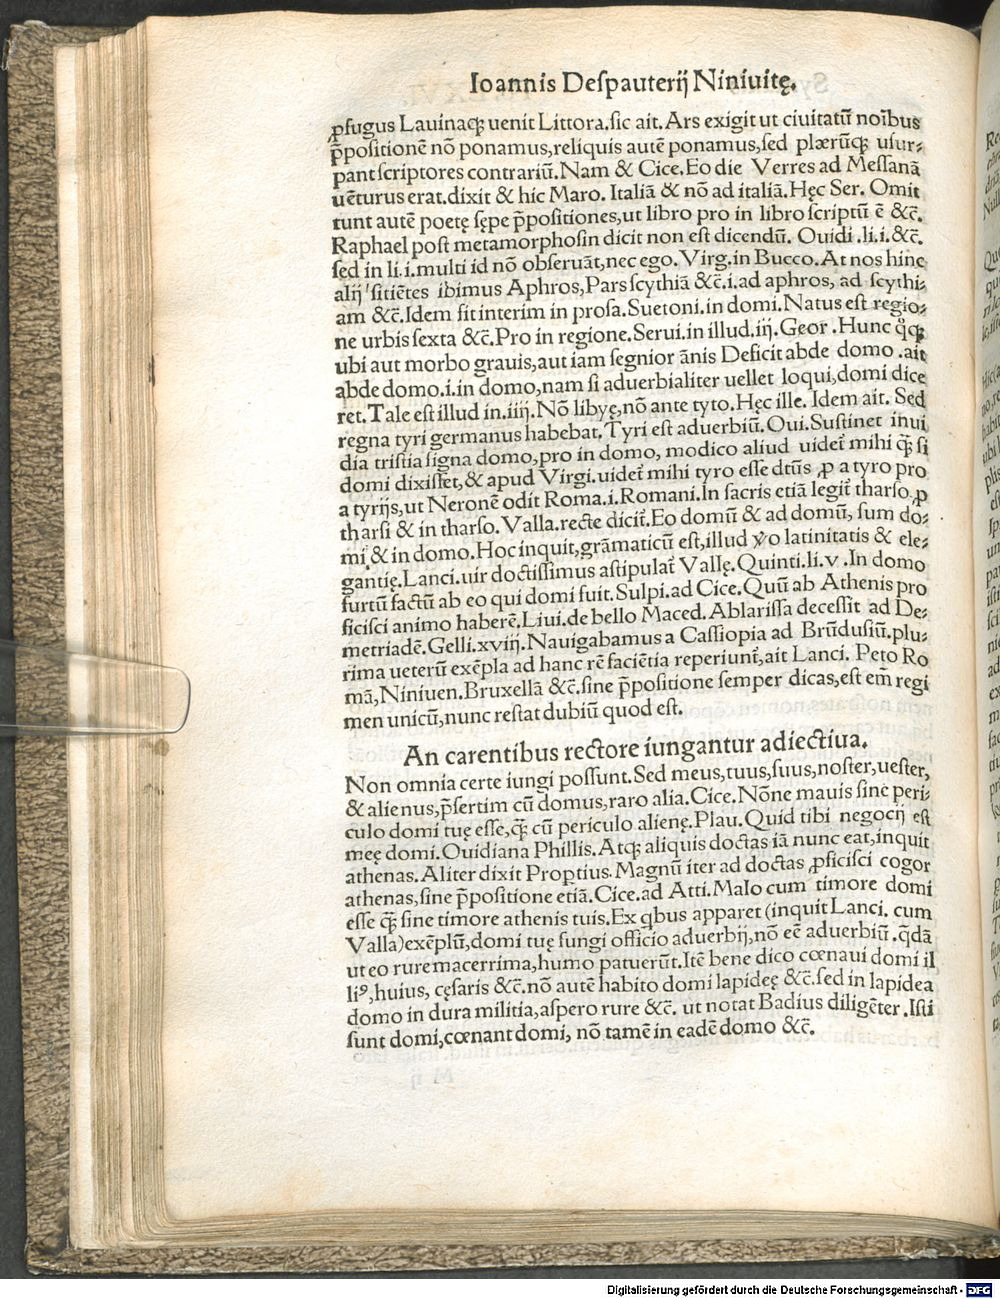 Ioannis Deſpauterij Niniuitę.
ꝓfugus Lauinaqꝫ uenit Littora.ſic ait.Ars exigit ut ciuitatū noībus
p̄poſitionē nō ponamus,reliquis autē ponamus,ſed plærūqꝫ uſur⸗
pant ſcriptores contrariū.Nam & Cice.Eo die Verres ad Meſſanā
uēturus erat.dixit & hic Maro. Italiā & nō ad italiā.Hęc Ser. Omit
tunt autē poetę ſępe p̄poſitiones,ut libro pro in libro ſcriptū ē &c̄.
Raphael poſt metamorphoſin dicit non eſt dicendū. Ouidi .li.i.&c̄.
ſed in li.i.multi id nō obſeruāt,nec ego. Virg.in Bucco.At nos hinc
alij ſitiētes ibimus Aphros,Pars ſcythiā &c̄.i.ad aphros, ad ſcythi⸗
am &c̄.Idem fit interim in proſa.Suetoni.in domi.Natus eſt regio⸗
ne urbis ſexta &c̄.Pro in regione.Serui.in illud.iij.Geor .Hunc qͦqꝫ
ubi aut morbo grauis,aut iam ſegnior ānis Deficit abde domo .ait
abde domo.i.in domo,nam ſi aduerbialiter uellet loqui,domi dice
ret.Tale eſt illud in.iiij.Nō libyę,nō ante tyto.Hęc ille. Idem ait. Sed
regna tyri germanus habebat.Tyri eſt aduerbiū.Oui.Suſtinet inui
dia triſtia ſigna domo,pro in domo, modico aliud uidet᷑ mihi qꝫ̄ ſi
domi dixiſſet,& apud Virgi.uidet᷑ mihi tyro eſſe dt̄us ꝓ a tyro pro
a tyrijs,ut Neronē odit Roma.i.Romani.In ſacris etiā legit᷑ tharſo ꝓ
tharſi & in tharſo.Valla.recte dicit᷑.Eo domū & ad domū, ſum do⸗
mi & in domo.Hoc inquit,grāmaticū eſt,illud ỽo latinitatis & ele⸗
gantię.Lanci.uir doctiſſimus aſtipulat᷑ Vallę.Quinti.li.v .In domo
furtū factū ab eo qui domi fuit.Sulpi.ad Cice.Quū ab Athenis pro
ficiſci animo haberē.Liui.de bello Maced.Ab lariſſa deceſſit ad De⸗
metriadē.Gelli.xviij.Nauigabamus a Caſſiopia ad Brūduſiū.plu⸗
rima ueterū exēpla ad hanc rē faciētia reperiunt᷑,ait Lanci. Peto Ro
mā,Niniuen.Bruxellā &c̄.ſine p̄poſitione ſemper dicas,eſt em̄ regi
men unicū,nunc reſtat dubiū quod eſt.
An carentibus rectore iungantur adiectiua.
Non omnia certe iungi poſſunt.Sed meus,tuus,ſuus,noſter,ueſter,
& alienus,p̄ſertim cū domus,raro alia.Cice.Nōne mauis ſine peri⸗
culo domi tuę eſſe,qꝫ̄ cū periculo alienę.Plau.Quid tibi negocij eſt
meę domi.Ouidiana Phillis.Atqꝫ aliquis doctas iā nunc eat,inquit
athenas.Aliter dixit Propt̄ius.Magnū iter ad doctas ꝓficiſci cogor
athenas,ſine p̄poſitione etiā.Cice.ad Atti.Malo cum timore domi
eſſe qꝫ̄ ſine timore athenis tuis.Ex qbus apparet (inquit Lanci. cum
Valla)exēplū,domi tuę fungi officio aduerbij,nō eē aduerbiū .qdā
ut eo rure macerrima,humo patuerūt.Itē bene dico cœnaui domi il
liꝰ,huius, cęſaris &c̄.nō autē habito domi lapideę &c̄.ſed in lapidea
domo in dura militia,aſpero rure &c̄. ut notat Badius diligēter .Iſti
ſunt domi,cœnant domi, nō tamē in eadē domo &c̄.
Digitalisierung gefördert durch die Deutsche Forschungsgemeinschaft - DFG